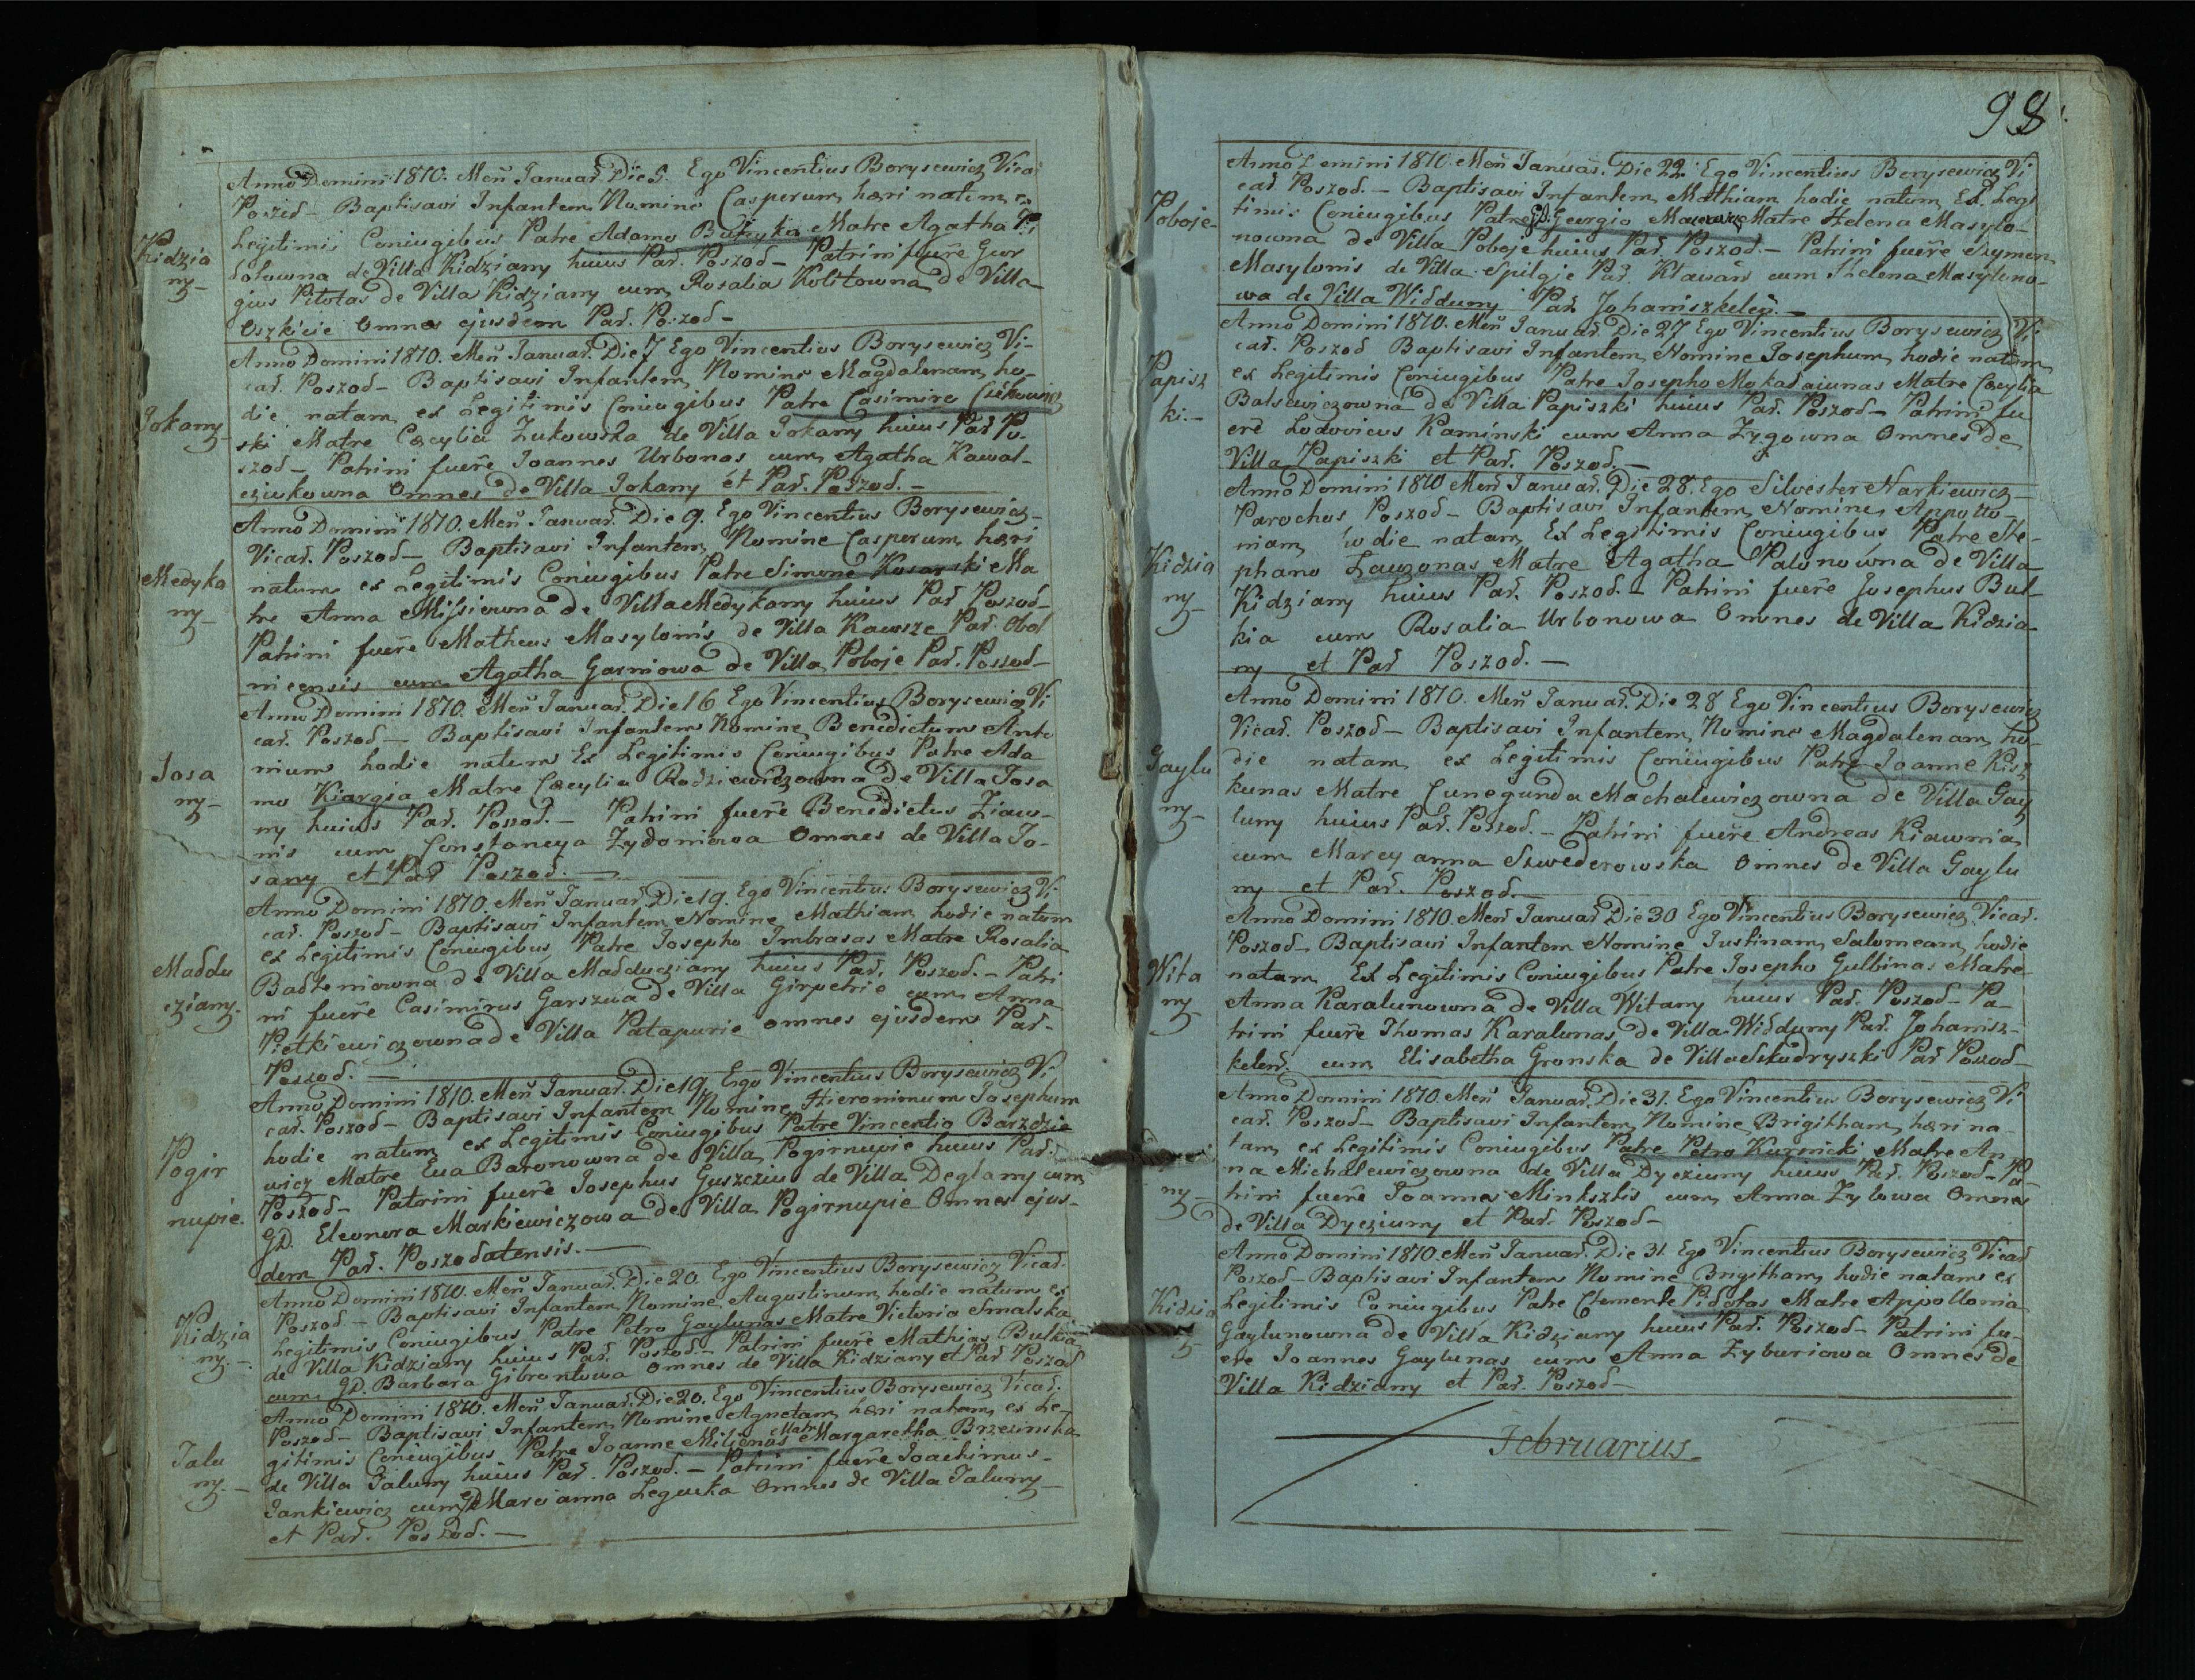 Kidzia
ny
Anno Domini 1810. Men Januar. Die 5. Ego Vincentius Borysewicz Vica
Poszod - Baptisavi Infantem Nomine Casperum hæri natum ex
Legitimis Coniugibus Patre Adamo Butryka Matre Agatha Pi
tołowna de Villa Kidziany huius Par. Poszod - Patrini fuere Geor
gius Pitołas de Villa Kidziany cum Rosalia Kolitowna de Villa
Oszkicie Omnes ejusdem Par. Poszod -
Jokany
Anno Domini 1810. Men Januar. Die 7 Ego Vincentius Borysewicz Vi-
car. Poszod - Baptisavi Infantem Nomine Magdalenam ho-
die natam ex Legitimis Coniugibus Patre Casimiro
ski Matre Cæcylia Zukowska de Villa Jokany huius Par Po-
szod - Patrini fuere Joannes Urbonas cum Agatha Kawal-
cziukowna Omnes de Villa Jokany et Par. Poszod. -
Medyka
ny
Anno Domini 1810. Men Januar. Die 9. Ego Vincentius Borysewicz -
Vicar. Poszod - Baptisavi Infantem Nomine Casperum hæri
natum ex Legitimis Coniugibus Patre Simone Kosarski Ma
tre Anna Missiowna de Villa Medykany huius Par Poszod -
Patrini fuere Matheus Masylonis de Villa Kawsze Par. Obol
nicensis cum Agatha Garniowa de Villa Poboje Par. Poszod -
Josa
ny -
Anno Domini 1810. Men Januar. Die 16 Ego Vincentius Borysewicz Vi
car. Poszod - Baptisavi Infantem Nomine Benedictum Anto
nium hodie natum Ex Legitimis Coniugibus Patre Ada
mo Kiargia Matre Cæcylia Rodziewiczowna de Villa Josa
ny huius Par. Poszod. - Patrini fuere Benedictus Ziaw-
nis cum Constancya Zydoniowa Omnes de Villa Jo-
sany et Par Poszod. -
Maddu
cziany.
Anno Domini 1810. Men Januar. Die 19. Ego Vincentius Borysewicz Vi
car. Poszod - Baptisavi Infantem Nomine Mathiam hodie natum
ex Legitimis Coniugibus Patre Josepho Imbrasas Matre Rosalia
Badteniowna de Villa Madducziany huius Par. Poszod. - Patri
ni fuere Casimirus Garszwa de Villa Girpetrie cum Anna
Pietkiewiczowna de Villa Patapurie omnes ejusdem Par.
Poszod. -
Pogir
nupie.
Anno Domini 1810. Men Januar. Die 19. Ego Vincentius Borysewicz Vi
car. Poszod - Baptisavi Infantem Nomine Hieronimum Josephum
hodie natum ex Legitimis Coniugibus Patre Vincentio Barzdzie
wicz Matre Eua Baronowna de Villa Pogirnupie huius Par.
Poszod - Patrini fuere Josephus Guszczius de Villa Deglany cum
GD. Eleonora Markiewiczowa de Villa Pogirnupie Omnes ejus-
dem Par. Poszodatensis. -
Kidzia
ny. -
Anno Domini 1810. Men Januar. Die 20. Ego Vincentius Borysewicz Vicar.
Poszod - Baptisavi Infantem Nomine Augustinum hodie natum ex
Legitimis Coniugibus Patre Petro Gaylunas Matre Victoria Smalska
de Villa Kidziany huius Par. Poszod - Patrini fuere Mathias Bulkia
cum GD. Barbara Gibrontowa omnes de Villa Kidziany et Par Poszod
Jalu
ny. -
Anno Domini 1810. Men Januar. Die 20. Ego Vincentius Borysewicz Vicar.
Poszod - Baptisavi Infantem Nomine Agnetam hæri natam ex Le-
gitimis Coniugibus Patre Joanne Milienas Matre Margaretha Brzezinska
de Villa Jaluny huius Par. Poszod. - Patrini fuere Joachimus -
Jankiewicz cum GD Marcianna Legucka Omnes de Villa Jaluny -
et Par. Poszod. -
98
Poboje -
Anno Domini 1810. Men Januar. Die 22. Ego Vincentius Borysewicz Vi
car. Poszod. - Baptisavi Infantem Mathiam hodie natum Ex Legi
timis Coniugibus Patre GD. Georgio Matre Helena Masylo-
nowna de Villa Poboje huius Par. Poszod. - Patrini fuere Szymon
Masylonis de Villa Spilgie Par. Klawan cum Helena Masylono-
wa de Villa Widduny Par. Johaniszkelen. -
Papisz
ki. -
Anno Domini 1810. Men Januar. Die 27 Ego Vincentius Borysewicz Vi
car. Poszod Baptisavi Infantem Nomine Josephum hodie natum
ex Legitimis Coniugibus Patre Josepho Mokasaiunas Matre Cæcylia
Balsewiczowna de Villa Papiszki huius Par. Poszod - Patrini fu
ere Lodovicus Kaminski cum Anna Zygowna Omnes de
Villa Papiszki et Par. Poszod -
Kidzia
ny -
Anno Domini 1810 Men Januar. Die 28. Ego Silvester Narkiewicz -
Parochus Poszod - Baptisavi Infantem Nomine Appollo-
niam hodie natam Ex Legitimis Coniugibus Patre Ste-
phano Lauzonas Matre Agatha Palonowna de Villa
Kidziany huius Par. Poszod. - Patrini fuere Josephus Bul-
kia cum Rosalia Urbonowa Omnes de Villa Kidzia-
ny et Par Poszod. -
Gaylu
ny -
Anno Domini 1810. Men Januar. Die 28 Ego Vincentius Borysewicz
Vicar. Poszod - Baptisavi Infantem Nomine Magdalenam ho-
die natam ex Legitimis Coniugibus Patre Joanne Kisz
kunas Matre Cunegunda Machalewiczowna de Villa Gay
luny huius Par. Poszod. - Patrini fuere Andreas Kiawnia
cum Marcyanna Szwederowska Omnes de Villa Gaylu
ny et Par. Poszod. -
Wita
ny -
Anno Domini 1810. Men Januar Die 30 Ego Vincentius Borysewicz Vicar.
Poszod - Baptisavi Infantem Nomine Justinam Salomeam hodie
natam Ex Legitimis Coniugibus Patre Josepho Gulbinas Matre
Anna Karalunowna de Villa Witany huius Par. Poszod - Pa-
trini fuere Thomas Karalunas de Villa Widduny Par. Johanisz-
kelen. cum Elisabetha Gronska de Villa Skudryszki Par Poszod -
ny -
Anno Domini 1810. Men Januar. Die 31. Ego Vincentius Borysewicz Vi
car. Poszod - Baptisavi Infantem Nomine Brigitham hæri na-
tam ex Legitimis Coniugibus Patre Petro Kurinicki Matre An
na Michalewiczowna de Villa Dycziuny huius Par. Poszod - Pa-
trini fuere Joannes Minksztis cum Anna Zylowa Omnes
de Villa Dycziuny et Par. Poszod -
Kidzia
Anno Domini 1810. Men Januar. Die 31. Ego Vincentius Borysewicz Vicar
Poszod - Baptisavi Infantem Nomine Brigitham hodie natam ex
Legitimis Coniugibus Patre Clemente Pidotas Matre Appollonia
Gaylunowna de Villa Kidziany huius Par. Poszod - Patrini fu-
ere Joannes Gaylunas cum Anna Zyburiowa Omnes de
Villa Kidziany et Par. Poszod -
Februarius